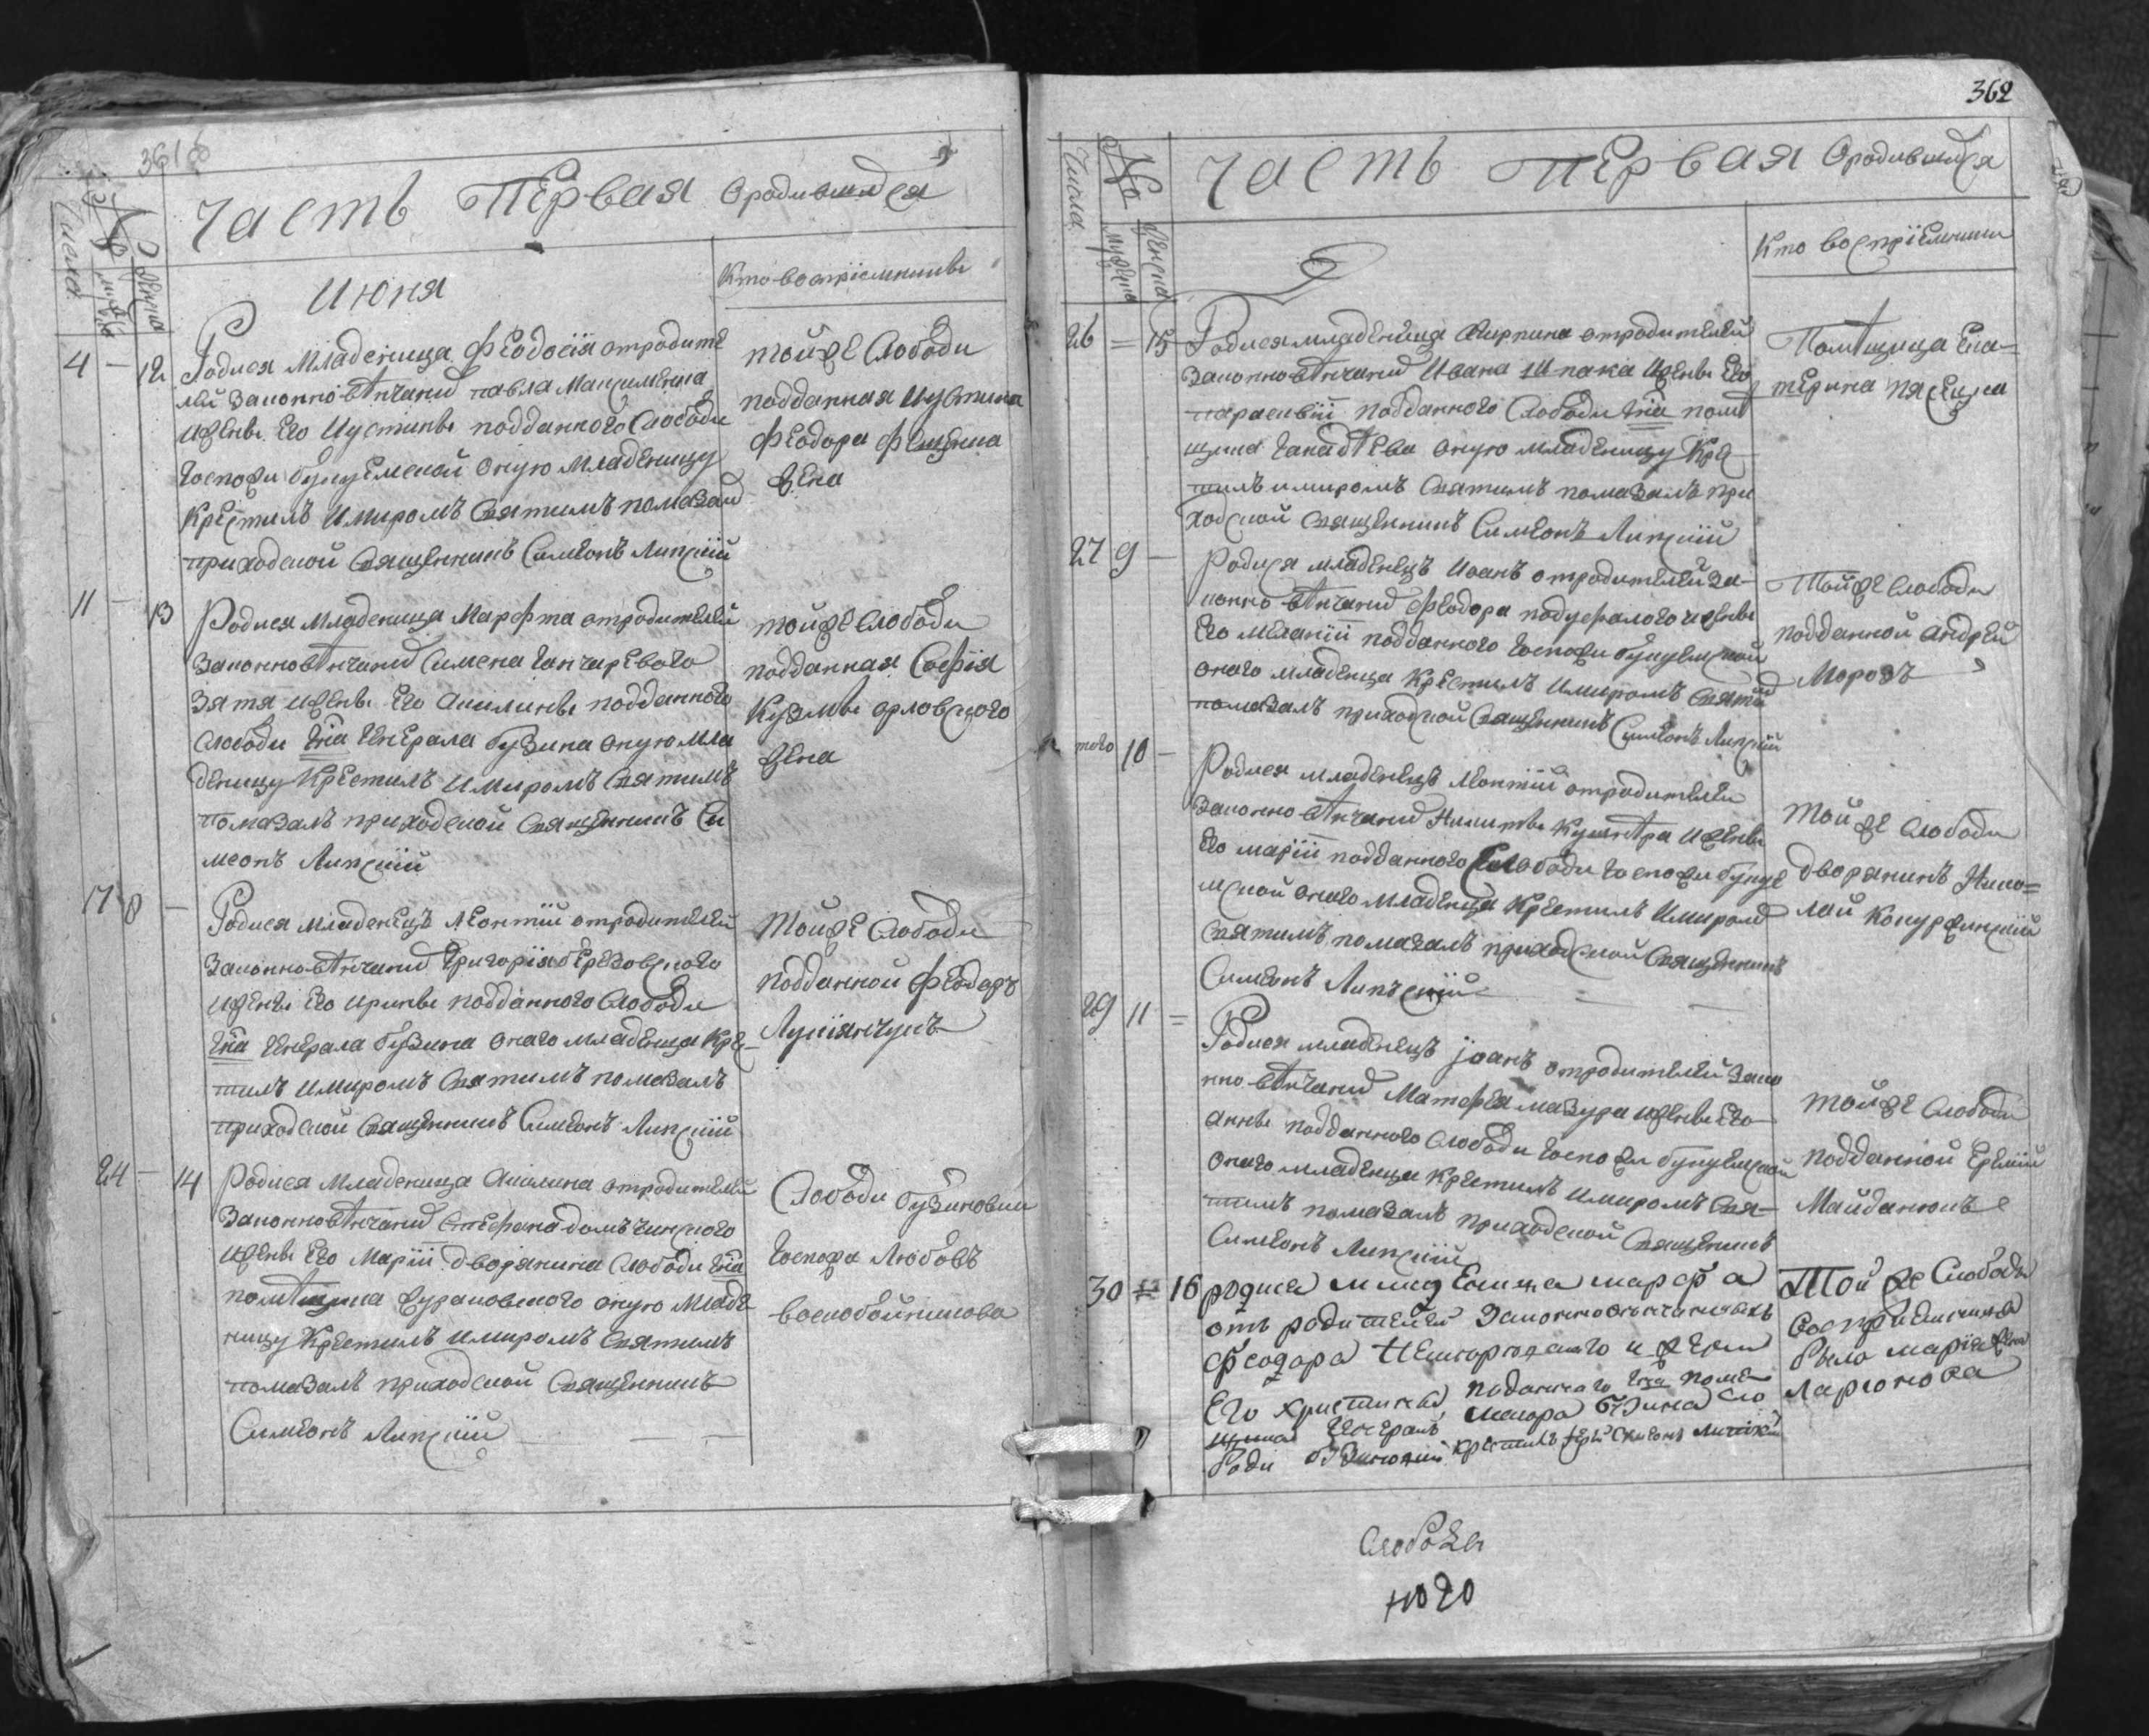 361
Часть Первая Ородившихся
Числа
№
Женска
Июня
Кто воспріемникы
4 — 12 Родися Младеница Феодосія отродите
лей Законновѣнчаних Павла Максименка
ижены Его Иустины подданного Слободи
Госпожи Букуемской Оную Младеницу
Крестилъ Имиромъ Святимъ помазал
приходской Священникъ Симеонъ Липский
тойже Слободи
подданная Иустина
Феодора
жена
11 — 13 Родися Младеница Марфта отродителей
Законновѣнчаних Симена Ганчаревого
Зятя ижены Его Акилины подданного
Слободи Его Генерала Бузина оную мла
деницу Крестилъ Имиромъ Святимъ
помазалъ приходской Священникъ Си
меонъ Липский
тойже Слободи
подданная Софія
Кузмы орловского
жена
17 8 — Родися Младенецъ Леонтий отродителей
Законновѣнчаних Григорія березовского
ижены Его Ирины подданного Слободи
Его Генерала Бузина Онаго младенца Кре
тилъ Имиромъ Святимъ помазалъ
приходской Священникъ Симеонъ Липский
Тойже Слободи
подданной Феодоръ
Лукіянчукъ
24 — 14 Родися Младеница Акилина отродителей
Законновѣнчаних Стефана домъчинского
ижены Его Маріи дворянина Слободи Его
помѣщика Журановского оную Младе
ницу Крестилъ Имиромъ Святимъ
помазалъ приходской Священникъ
Симеонъ Липский
Слободи бузиновки
Госпожа Любовъ
воскобойникова
362
Часть Первая Ородившихся
Числа
№
мужеска
женска
Кто воспріемники
26 = 15 Родися младеница отродителей
Законновѣнчаних Ивана Шпака Ижены Его
параскевіи подданного Слободи Его помѣ
щика оную младеницу Кре
тилъ имиромъ Святимъ помазалъ при
ходской Священникъ Симеонъ Липский
Помѣщица Ека=
терина
27 9 — Родися младенецъ Иоанъ отродителей За-
конно вѣнчаних Феодора ижены
Его Меланіи подданного Госпожи букуемской
онаго младенца Крестилъ Имиромъ Святим
помазалъ приходской Священникъ Симеонъ Липский
Тойже Слободи
подданной Андрей
Морозъ
того 10 — Родися младенецъ Леонтий отродителей
Законно вѣнчаних Никиты Кушнѣра Ижены
Его маріи подданного Слободи Госпожи букуе
мской онаго Младенца Крестилъ Имиромъ
Святимъ помазалъ приходской Священникъ
Симеонъ Липъский
Той же Слободи
дворянинъ Нико=
лай
29 11 = Родися младенецъ Іоанъ отродителей Зако
нно вѣнчаних Матфея мазура ижены Его
анны подданного Слободи Госпожи букуемской
Онаго младенца Крестилъ Имиромъ Свя-
тимъ помазалъ приходской Священникъ
Симеонъ Липский
тойже Слободи
подданной Еремій
Майданюкъ
30 16 родися младеница марфа
отъ родителей Законновѣнчанныхъ
феодора и жены
Его христины, поданнаго Его поме
щика Генералъ маиора Бузина Сло
боди Бузиновки крестилъ Іерей Симеонъ Липскій
Той же Слободы
воспріемница
была марія
ларионова
Слобода